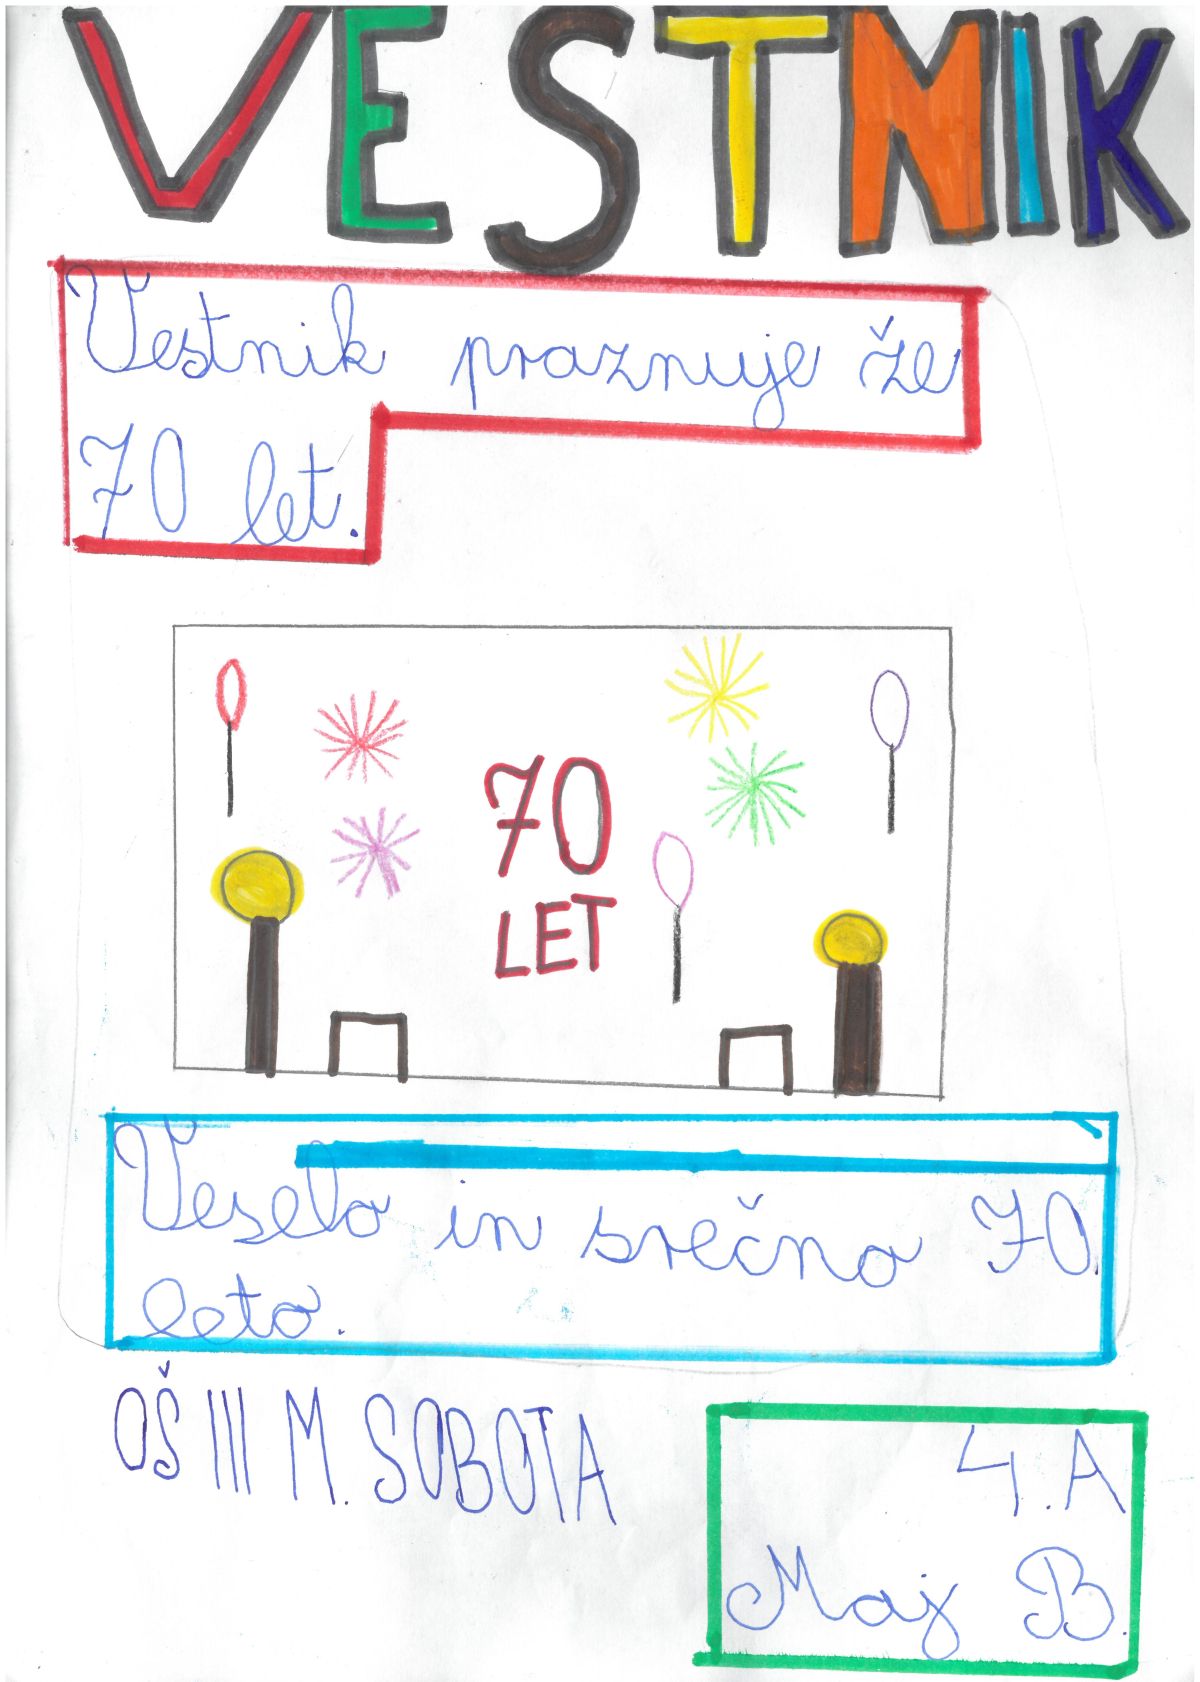 VESTNIK
Vestnik praznuje že
70 let.
70
LET
Veselo in srečno 70.
leto.
OŠ III M. SOBOTA
4. A
Maj B.